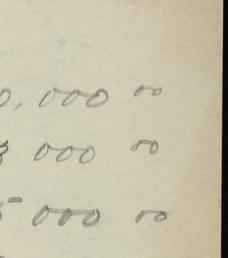 0,000 00
3 000 00
5 000 00